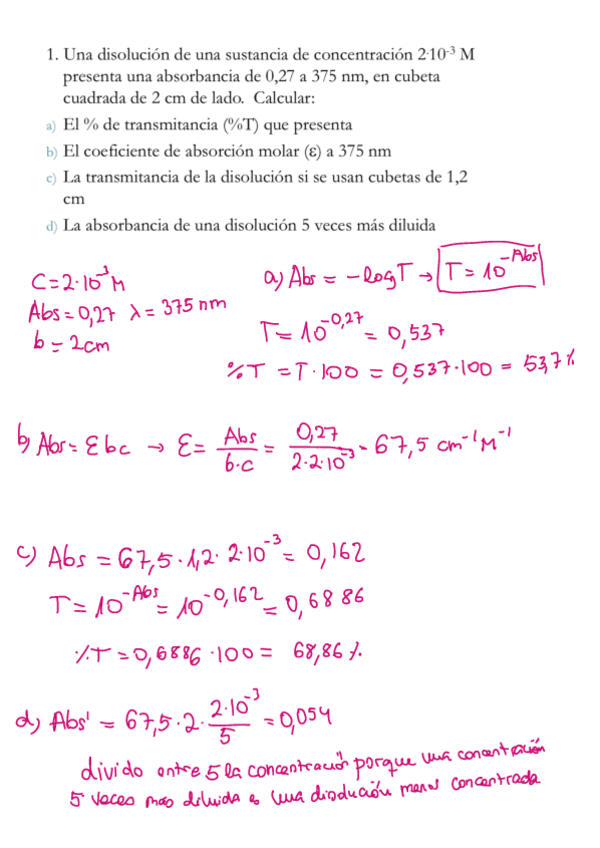 1. Una disolución de una sustancia de concentración 2·10⁻³ M
presenta una absorbancia de 0,27 a 375 nm, en cubeta
cuadrada de 2 cm de lado. Calcular:
a) El % de transmitancia (%T) que presenta
b) El coeficiente de absorción molar (ε) a 375 nm
c) La transmitancia de la disolución si se usan cubetas de 1,2
cm
d) La absorbancia de una disolución 5 veces más diluida
C=2·10⁻³M
Abs=0,27 λ=375 nm
b=2cm
a) Abs = -logT → T=10^-Abs
T=10^-0,27 = 0,537
%T = T·100 = 0,537·100 = 53,7%
b) Abs=εbc → ε= Abs/b·c = 0,27/2·2·10⁻³ = 67,5 cm⁻¹M⁻¹
c) Abs = 67,5·1,2·2·10⁻³ = 0,162
T=10^-Abs = 10^-0,162 = 0,6886
%T=0,6886·100 = 68,86%
d) Abs' = 67,5·2·2·10⁻³/5 = 0,054
divido entre 5 la concentración porque una concentración
5 veces más diluida es una disolución menos concentrada